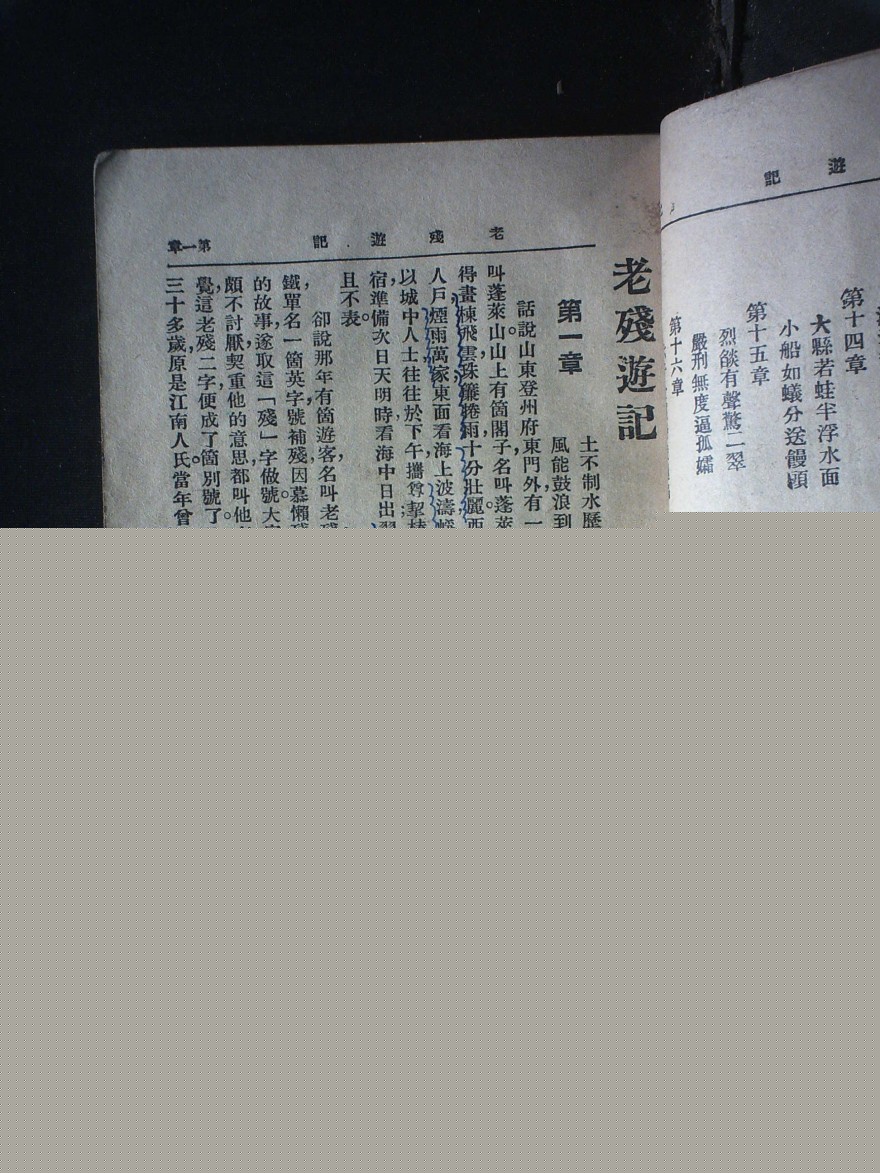 遊記
第十四章
大縣若蛙半浮水面
小船如蟻分送饅頭
第十五章
烈燄有聲驚二翠
嚴刑無度逼孤孀
第十六章
老殘遊記
第一章
老殘遊記
第一章
土不制水歷
風能鼓浪到
話說山東登州府東門外有一
叫蓬萊山山上有箇閣子名叫蓬萊
得畫棟飛雲,珠簾捲雨,十分壯麗。西
人戶,煙雨萬家,東面看海上波濤
以城中人士往往於下午攜尊挈
宿,準備次日天明時看海中日出
且不表。
卻說那年有箇遊客,名叫老殘
鐵,單名一箇英字,號補殘。因慕懶
的故事,遂取這「殘」字做號。大
頗不討厭,契重他的意思,都叫他
覺,這老殘二字,便成了箇別號了
三十多歲,原是江南人氏。當年曾